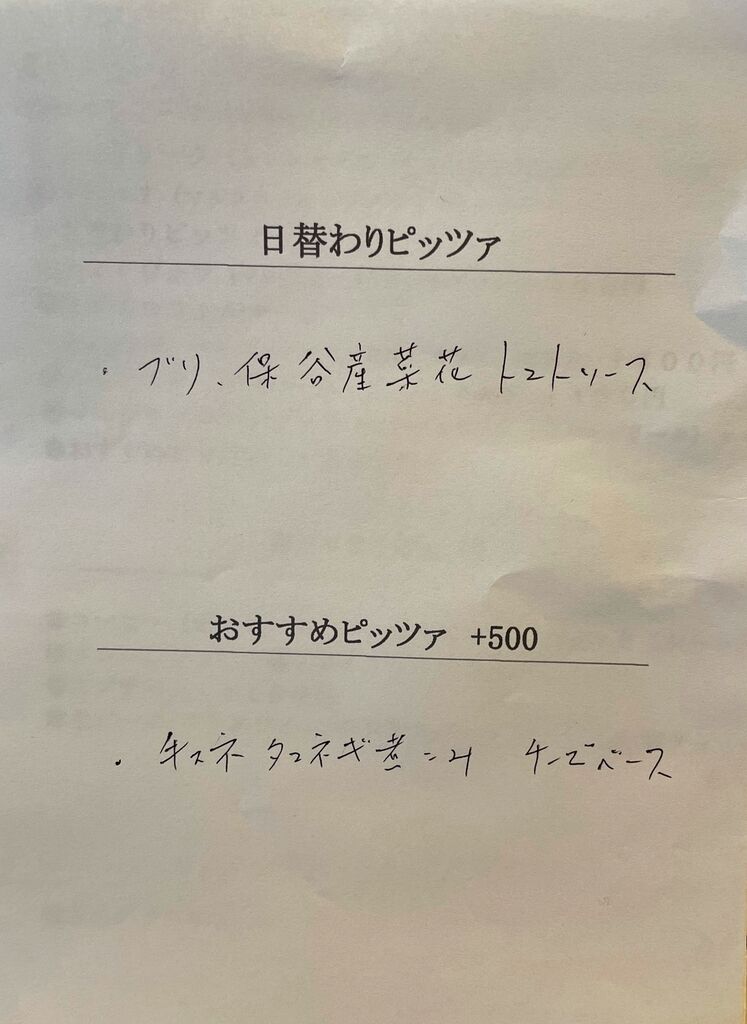 日替わりピッツァ
・ブリ、保谷産菜花 トマトソース
おすすめピッツァ +500
・牛スネ タマネギ煮こみ チーズベース